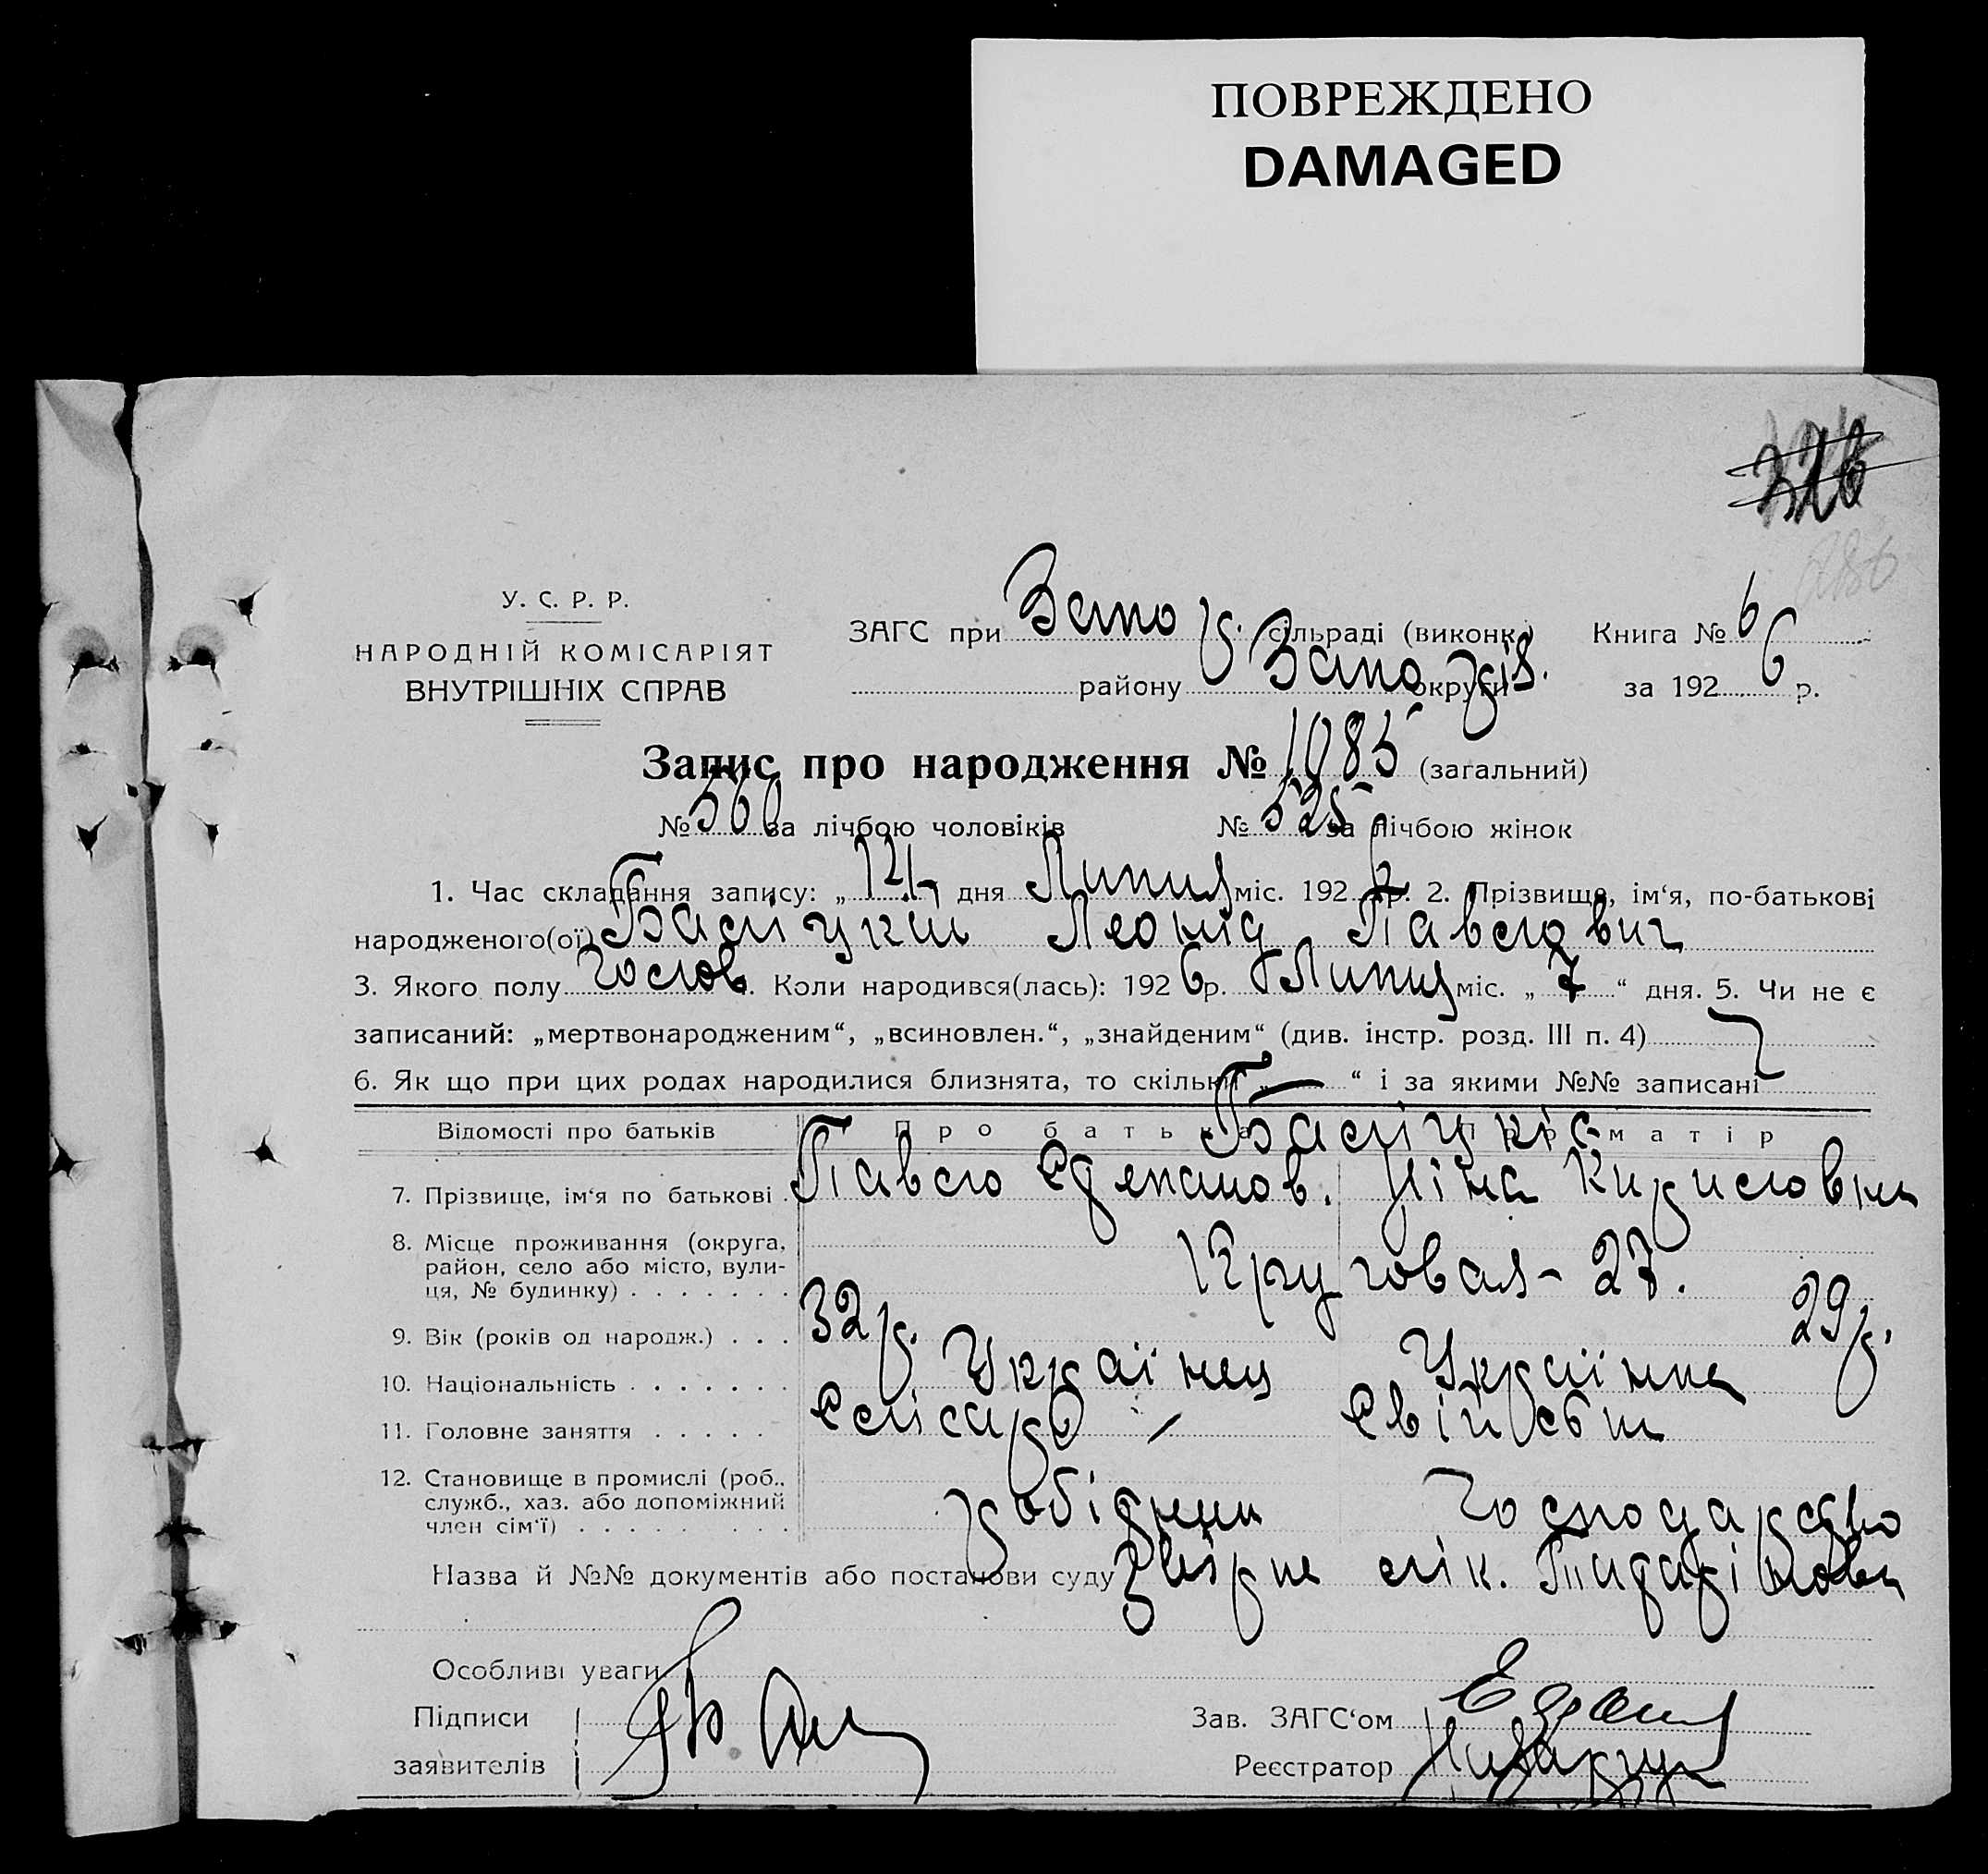 ПОВРЕЖДЕНО
DAMAGED
326
286
У. С. Р. Р.
НАРОДНІЙ КОМІСАРІЯТ
ВНУТРІШНІХ СПРАВ
ЗАГС при Запо р. сільраді (виконк.) Книга № 6
району Запо різ. округи за 192 6 р.
Запис про народження № 1085 (загальний)
№ 560 за лічбою чоловіків № 525 за лічбою жінок
1. Час складання запису: „ 14 дня Липця міс. 192 6 р. 2. Прізвище, ім‘я, по-батькові
народженого(ої) Леонід Павлович
3. Якого полу чолов. Коли народився(лась): 192 6 р. Липця міс. „ 7 “ дня. 5. Чи не є
записаний: „мертвонародженим“, „всиновлен.“, „знайденим“ (див. інстр. розд. III п. 4)
6. Як що при цих родах народилися близнята, то скільки „ — “ і за якими №№ записані
Відомості про батьків Про батька Про матір
7. Прізвище, ім‘я по батькові Павло Степанов. Ніна Кириловна
8. Місце проживання (округа,
район, село або місто, вули-
ця, № будинку) Круговая - 27.
9. Вік (років од народж.) 32 р. 29 р.
10. Національність Українец Українка
11. Головне заняття Слісарь
12. Становище в промислі (роб.,
служб., хаз. або допоміжний
член сім‘ї) робідник господарство
Назва й №№ документів або постанови суду лік.
Особливі уваги
Підписи
заявителів
Зав. ЗАГС‘ом
Реєстратор